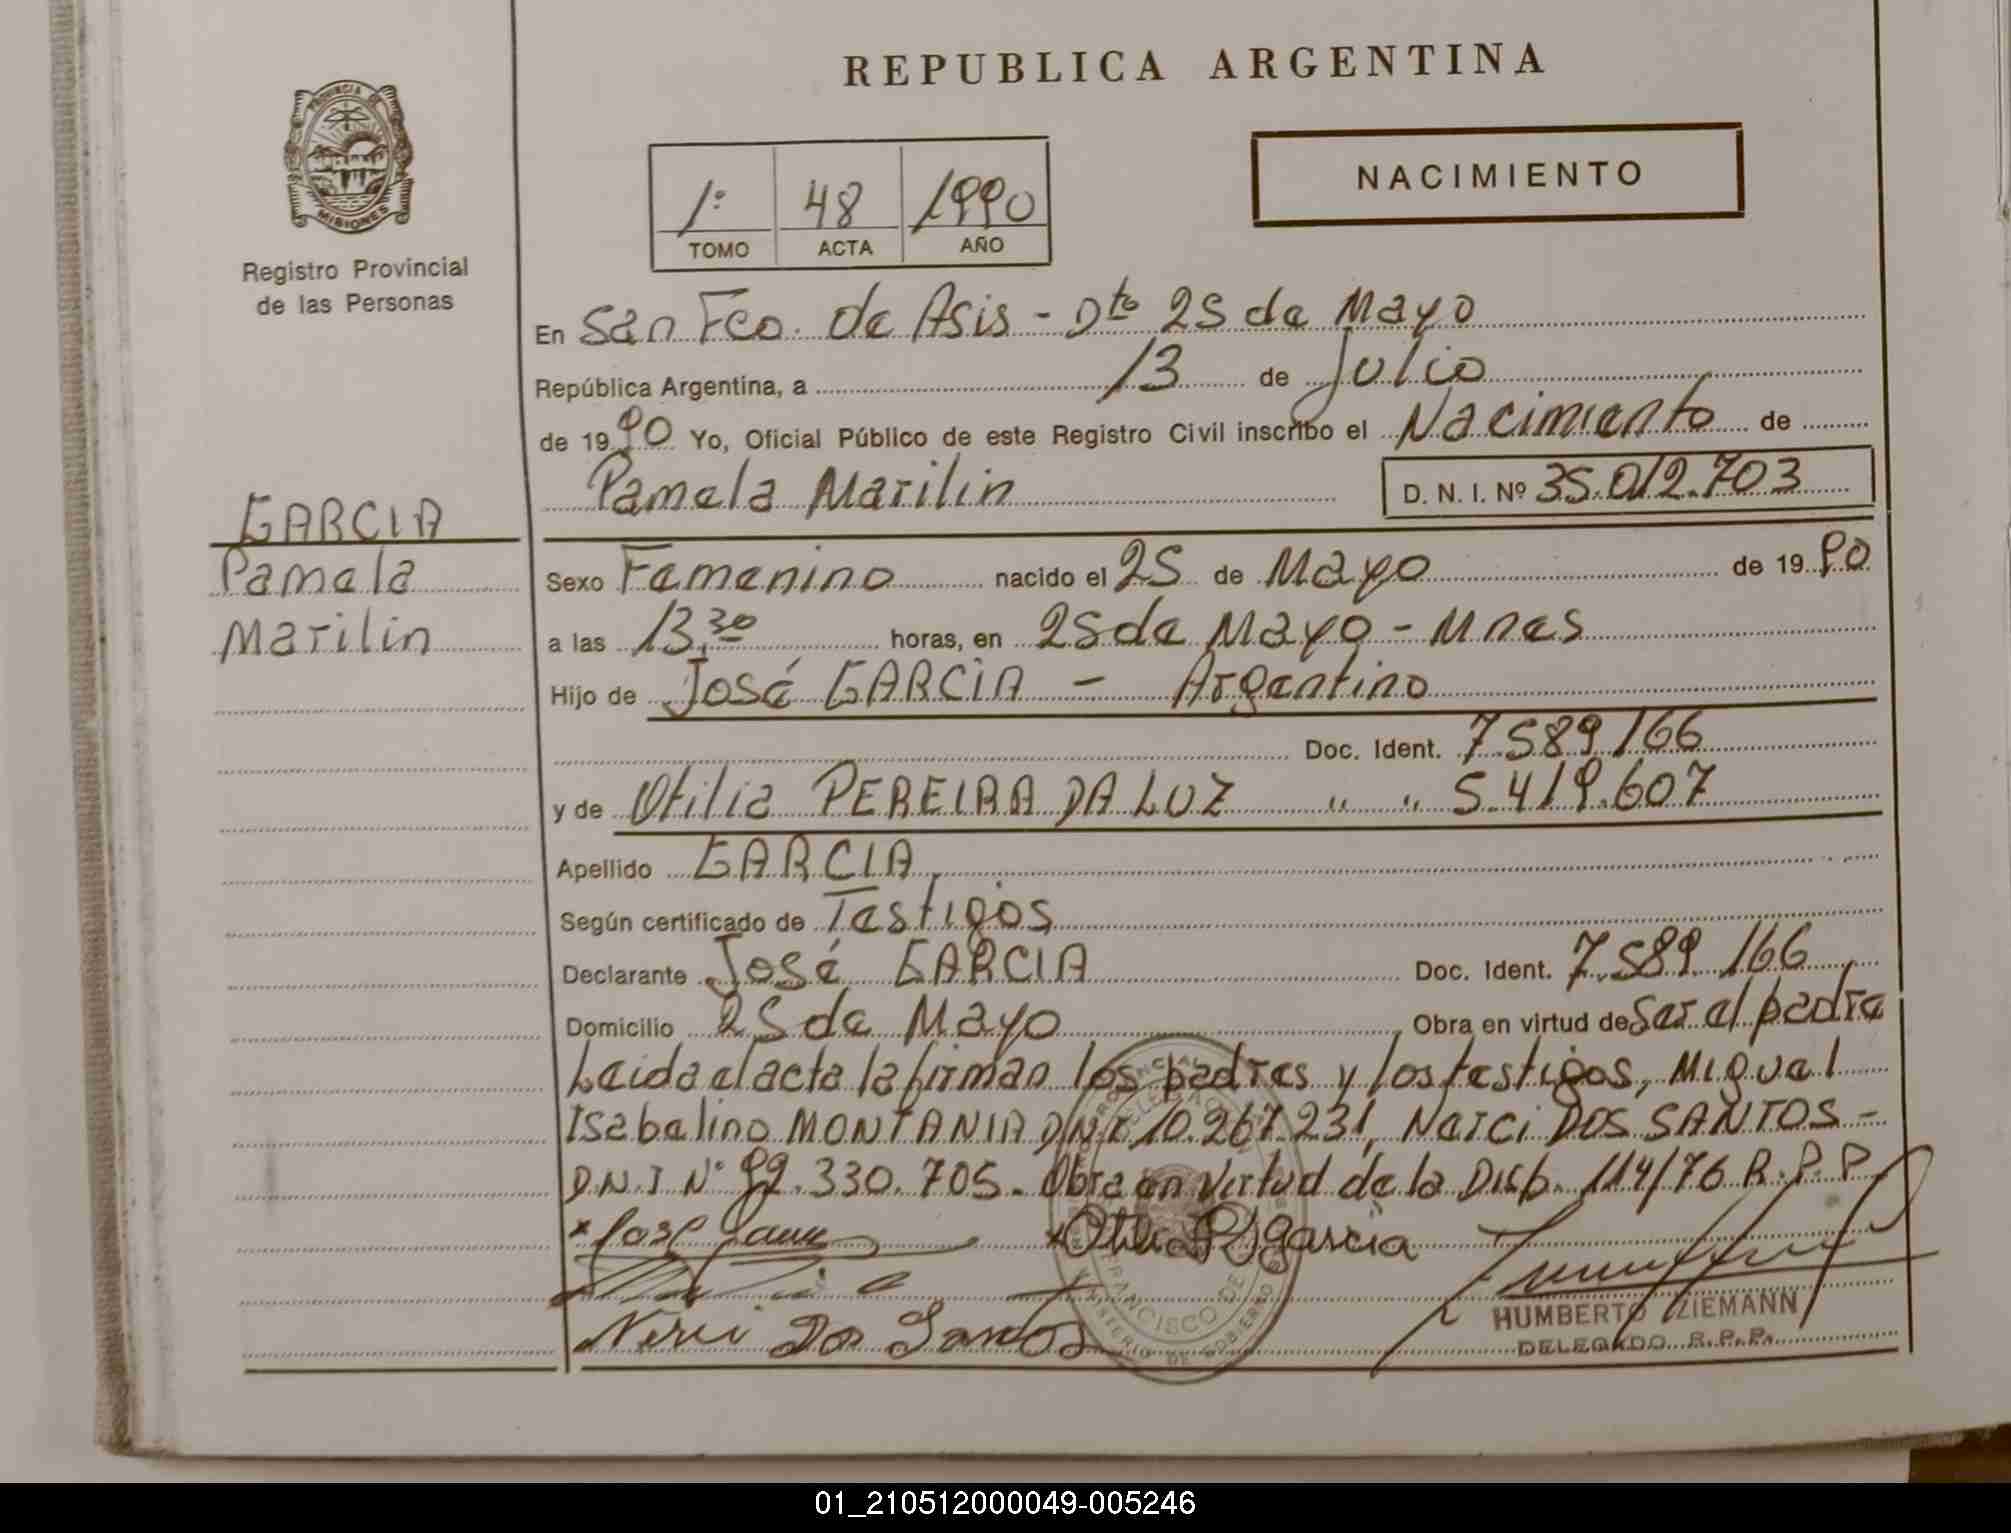 REPUBLICA ARGENTINA
PROVINCIA DE
MISIONES
Registro Provincial
de las Personas
NACIMIENTO
1º 48 1990
TOMO ACTA AÑO
En San Fco. de Asis - Dto 25 de Mayo
República Argentina, a 13 de Julio
de 1990 Yo, Oficial Público de este Registro Civil inscribo el Nacimiento de
Pamela Marilin D. N. I. Nº 35.012.703
GARCIA
Pamela
Marilin
Sexo Femenino nacido el 25 de Mayo de 1990
a las 13,30 horas, en 25 de Mayo - Mnes
Hijo de José GARCIA - Argentino
Doc. Ident. 7589166
y de Otilia PEREIRA DA LUZ " " 5.419.607
Apellido GARCIA
Según certificado de Testigos
Declarante José GARCIA Doc. Ident. 7.589.166
Domicilio 25 de Mayo Obra en virtud de ser el padre
Leida el acta la firman los padres y los testigos, Miguel
Isabelino MONTANIA DNI 10.267.231, Narci DOS SANTOS -
D.N.I Nº 92.330.705. Obra en virtud de la Disp. 114/76 R.P.P
x José x Otilia P garcia
Nerci Dos Santos
HUMBERTO ZIEMANN
DELEGADO R.P.P.
FRANCISCO DE
MINISTERIO DE GOBIERNO
01_210512000049-005246